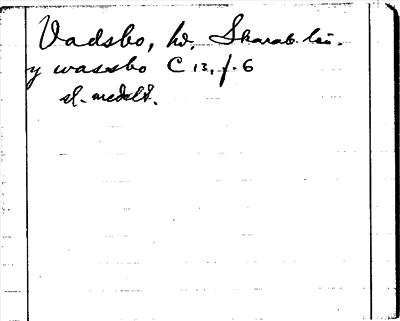 Vadsbo, hd, Skarab. län.
y wassbo C 13, f. 6
sl. medelt.